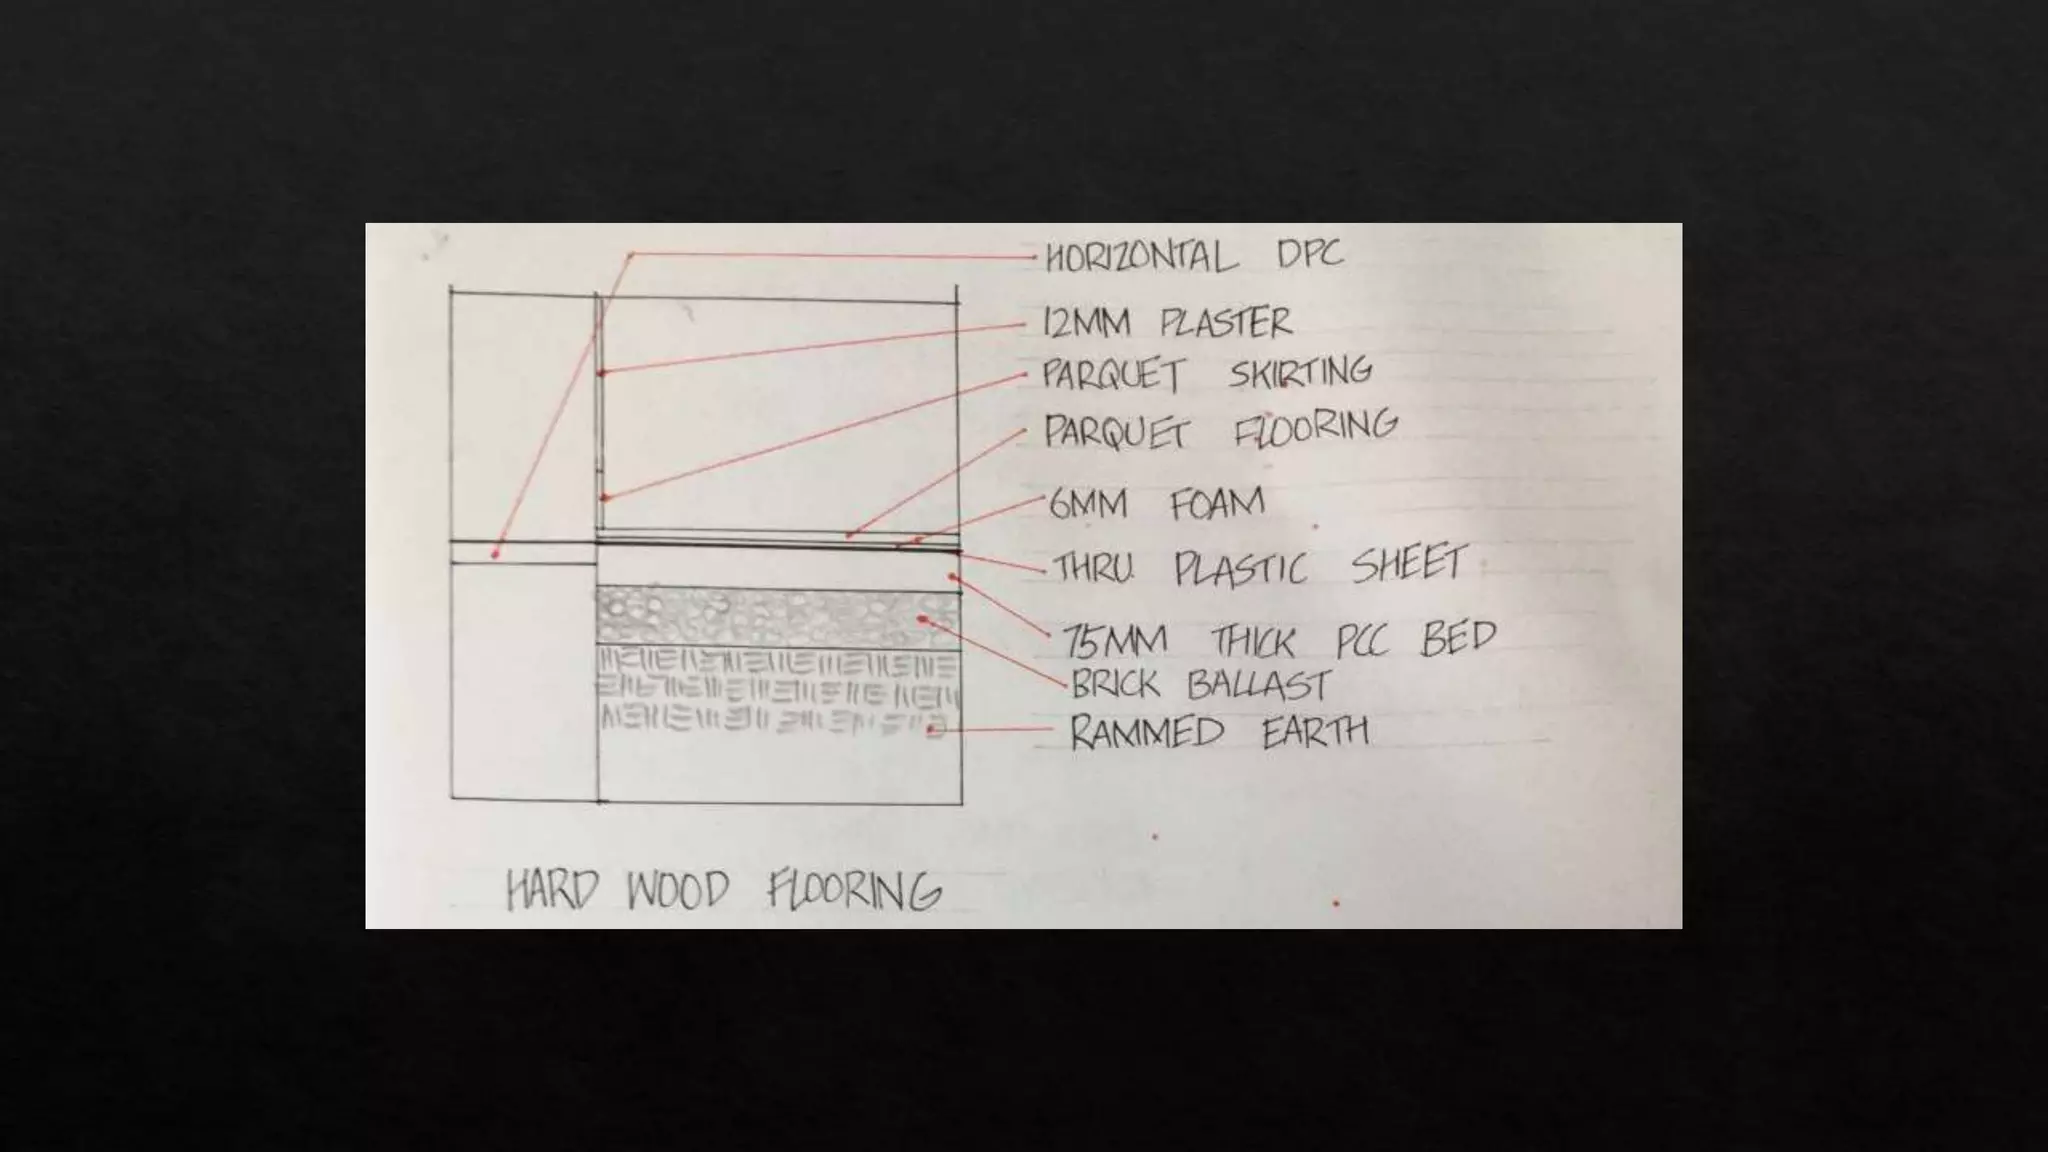 HORIZONTAL DPC
12MM PLASTER
PARQUET SKIRTING
PARQUET FLOORING
6MM FOAM
THRU PLASTIC SHEET
75MM THICK PCC BED
BRICK BALLAST
RAMMED EARTH
HARD WOOD FLOORING